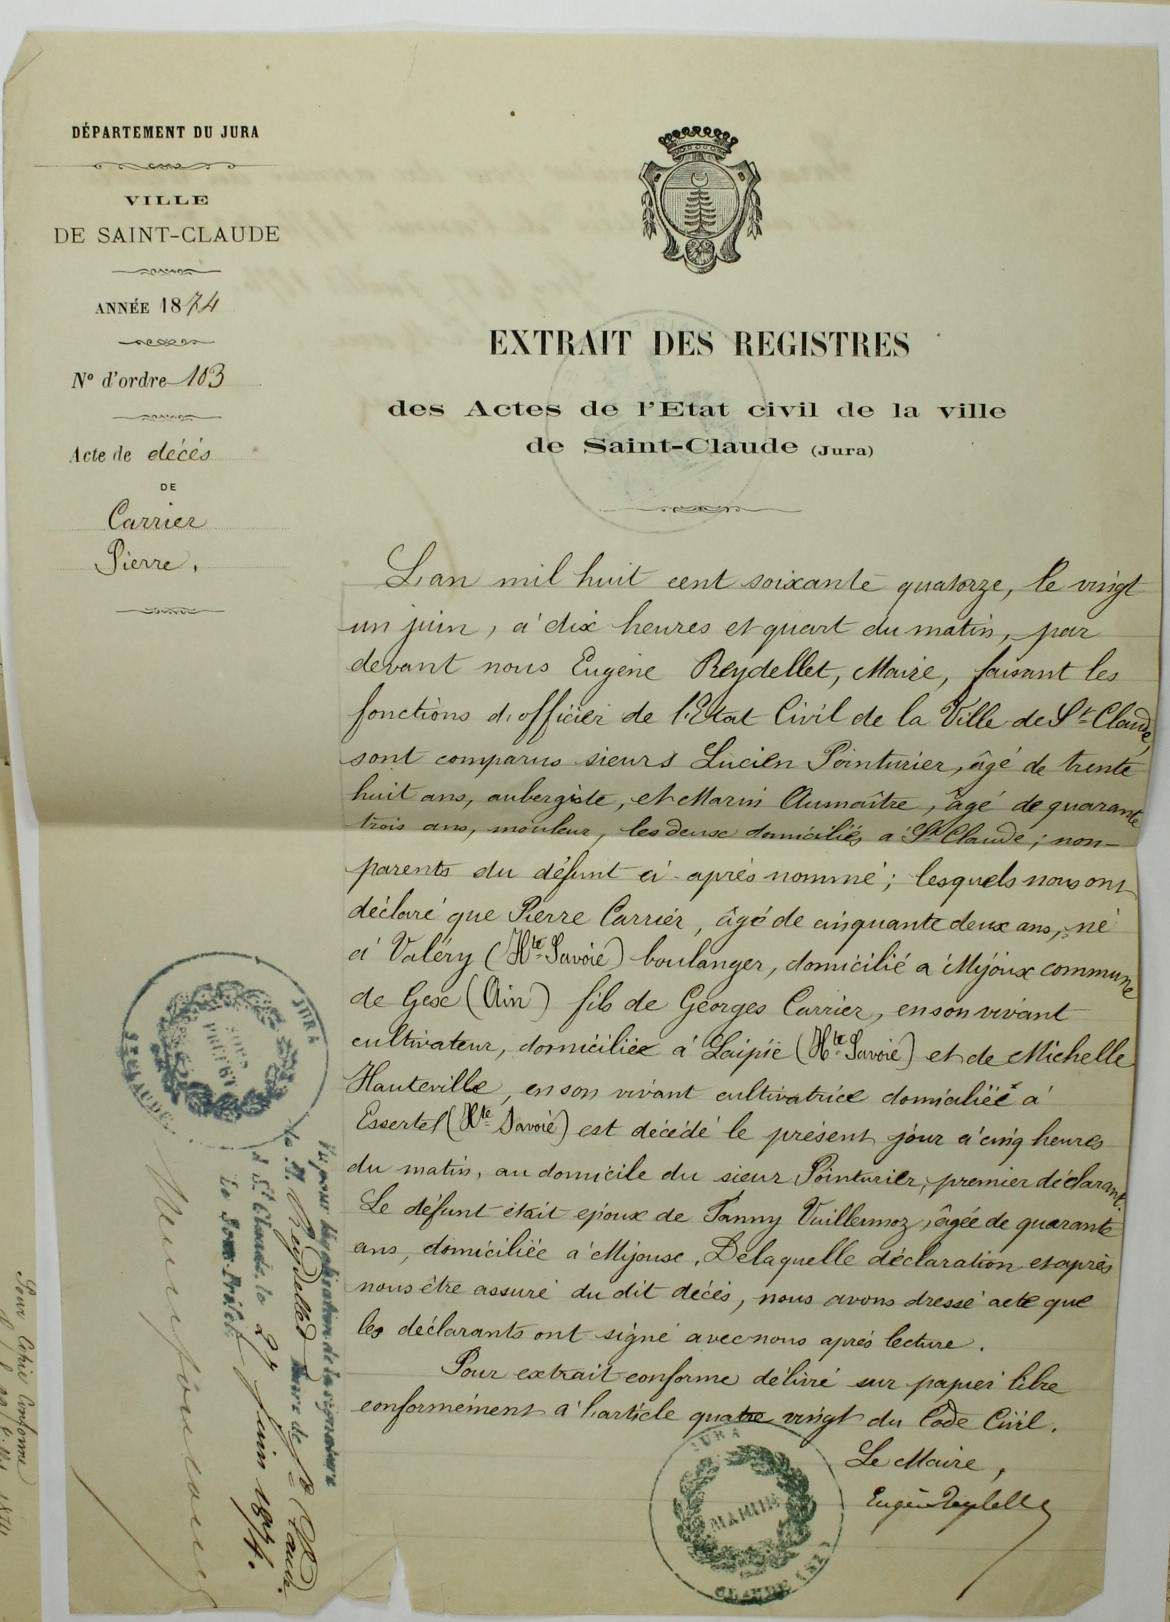 DÉPARTEMENT DU JURA
VILLE
DE SAINT-CLAUDE
ANNÉE 1874
N° d'ordre 103
Acte de décés
DE
Carrier
Pierre.
EXTRAIT DES REGISTRES
des Actes de l'Etat civil de la ville
de Saint-Claude (Jura)
L'an mil huit cent soixante quatorze, le vingt
un juin, à dix heures et quart du matin, par
devant nous Eugène Reydellet, Maire, faisant les
fonctions d'officier de l'Etat Civil de la Ville de St Claude,
sont comparus sieurs Lucien Pointurier, âgé de trente
huit ans, aubergiste, et Marin Aumaître, âgé de quarante
trois ans, mouleur, les deux domiciliés à St Claude; non
parents du défunt ci-après nommé; lesquels nous ont
déclaré que Pierre Carrier, âgé de cinquante deux ans, né
à Valéry (Hte Savoie) boulanger, domicilié à Mijoux commune
de Gex (Ain) fils de Georges Carrier, en son vivant
cultivateur, domicilié à Laipie (Hte Savoie) et de Michelle
Hauteville, en son vivant cultivatrice domiciliée à
Essertet (Hte Savoie) est décédé le présent jour à cinq heures
du matin, au domicile du sieur Pointurier, premier déclarant.
Le défunt était époux de Fanny Vuillermoz, âgée de quarante
ans, domiciliée à Mijoux. De laquelle déclaration et après
nous être assuré du dit décés, nous avons dressé acte que
les déclarants ont signé avec nous après lecture.
Pour extrait conforme délivré sur papier libre
conformément à l'article quatre vingt du Code Civil.
Le Maire,
Eugène Reydellet
JURA
MAIRIE
CLAUDE (ST)
JURA
SOUS
PRÉFET
ST CLAUDE
Vu pour légalisation de la signature
de M. Reydellet Maire de St Claude
à St Claude le 27 juin 1874.
Le Sous-Préfet
Pour Copie Conforme